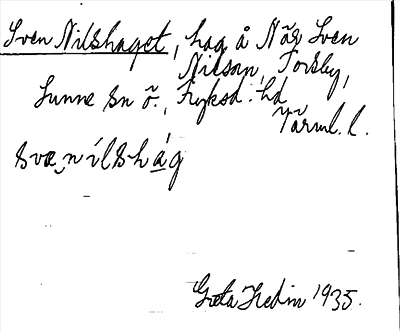 Sven Nilshaget, hag å När Sven
Nilson, Torsby,
Sunne sn ö., Fryksd. hd,
Värml. l.
svænílshág
Greta Hedin 1935.